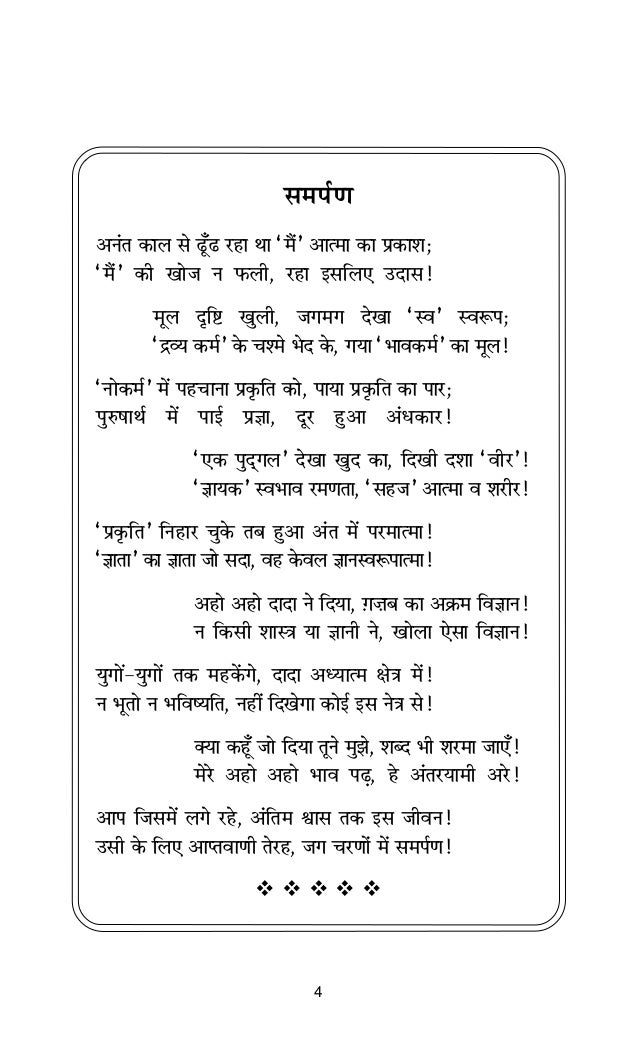 समर्पण
अनंत काल से ढूँढ रहा था ‘मैं’ आत्मा का प्रकाश;
‘मैं’ की खोज न फली, रहा इसलिए उदास!
मूल दृष्टि खुली, जगमग देखा ‘स्व’ स्वरूप;
‘द्रव्य कर्म’ के चश्मे भेद के, गया ‘भावकर्म’ का मूल!
‘नोकर्म’ में पहचाना प्रकृति को, पाया प्रकृति का पार;
पुरुषार्थ में पाई प्रज्ञा, दूर हुआ अंधकार!
‘एक पुद्गल’ देखा खुद का, दिखी दशा ‘वीर’!
‘ज्ञायक’ स्वभाव रमणता, ‘सहज’ आत्मा व शरीर!
‘प्रकृति’ निहार चुके तब हुआ अंत में परमात्मा!
‘ज्ञाता’ का ज्ञाता जो सदा, वह केवल ज्ञानस्वरूपात्मा!
अहो अहो दादा ने दिया, ग़ज़ब का अक्रम विज्ञान!
न किसी शास्त्र या ज्ञानी ने, खोला ऐसा विज्ञान!
युगों-युगों तक महकेंगे, दादा अध्यात्म क्षेत्र में!
न भूतो न भविष्यति, नहीं दिखेगा कोई इस नेत्र से!
क्या कहूँ जो दिया तूने मुझे, शब्द भी शरमा जाएँ!
मेरे अहो अहो भाव पढ़, हे अंतरयामी अरे!
आप जिसमें लगे रहे, अंतिम श्वास तक इस जीवन!
उसी के लिए आप्तवाणी तेरह, जग चरणों में समर्पण!
4